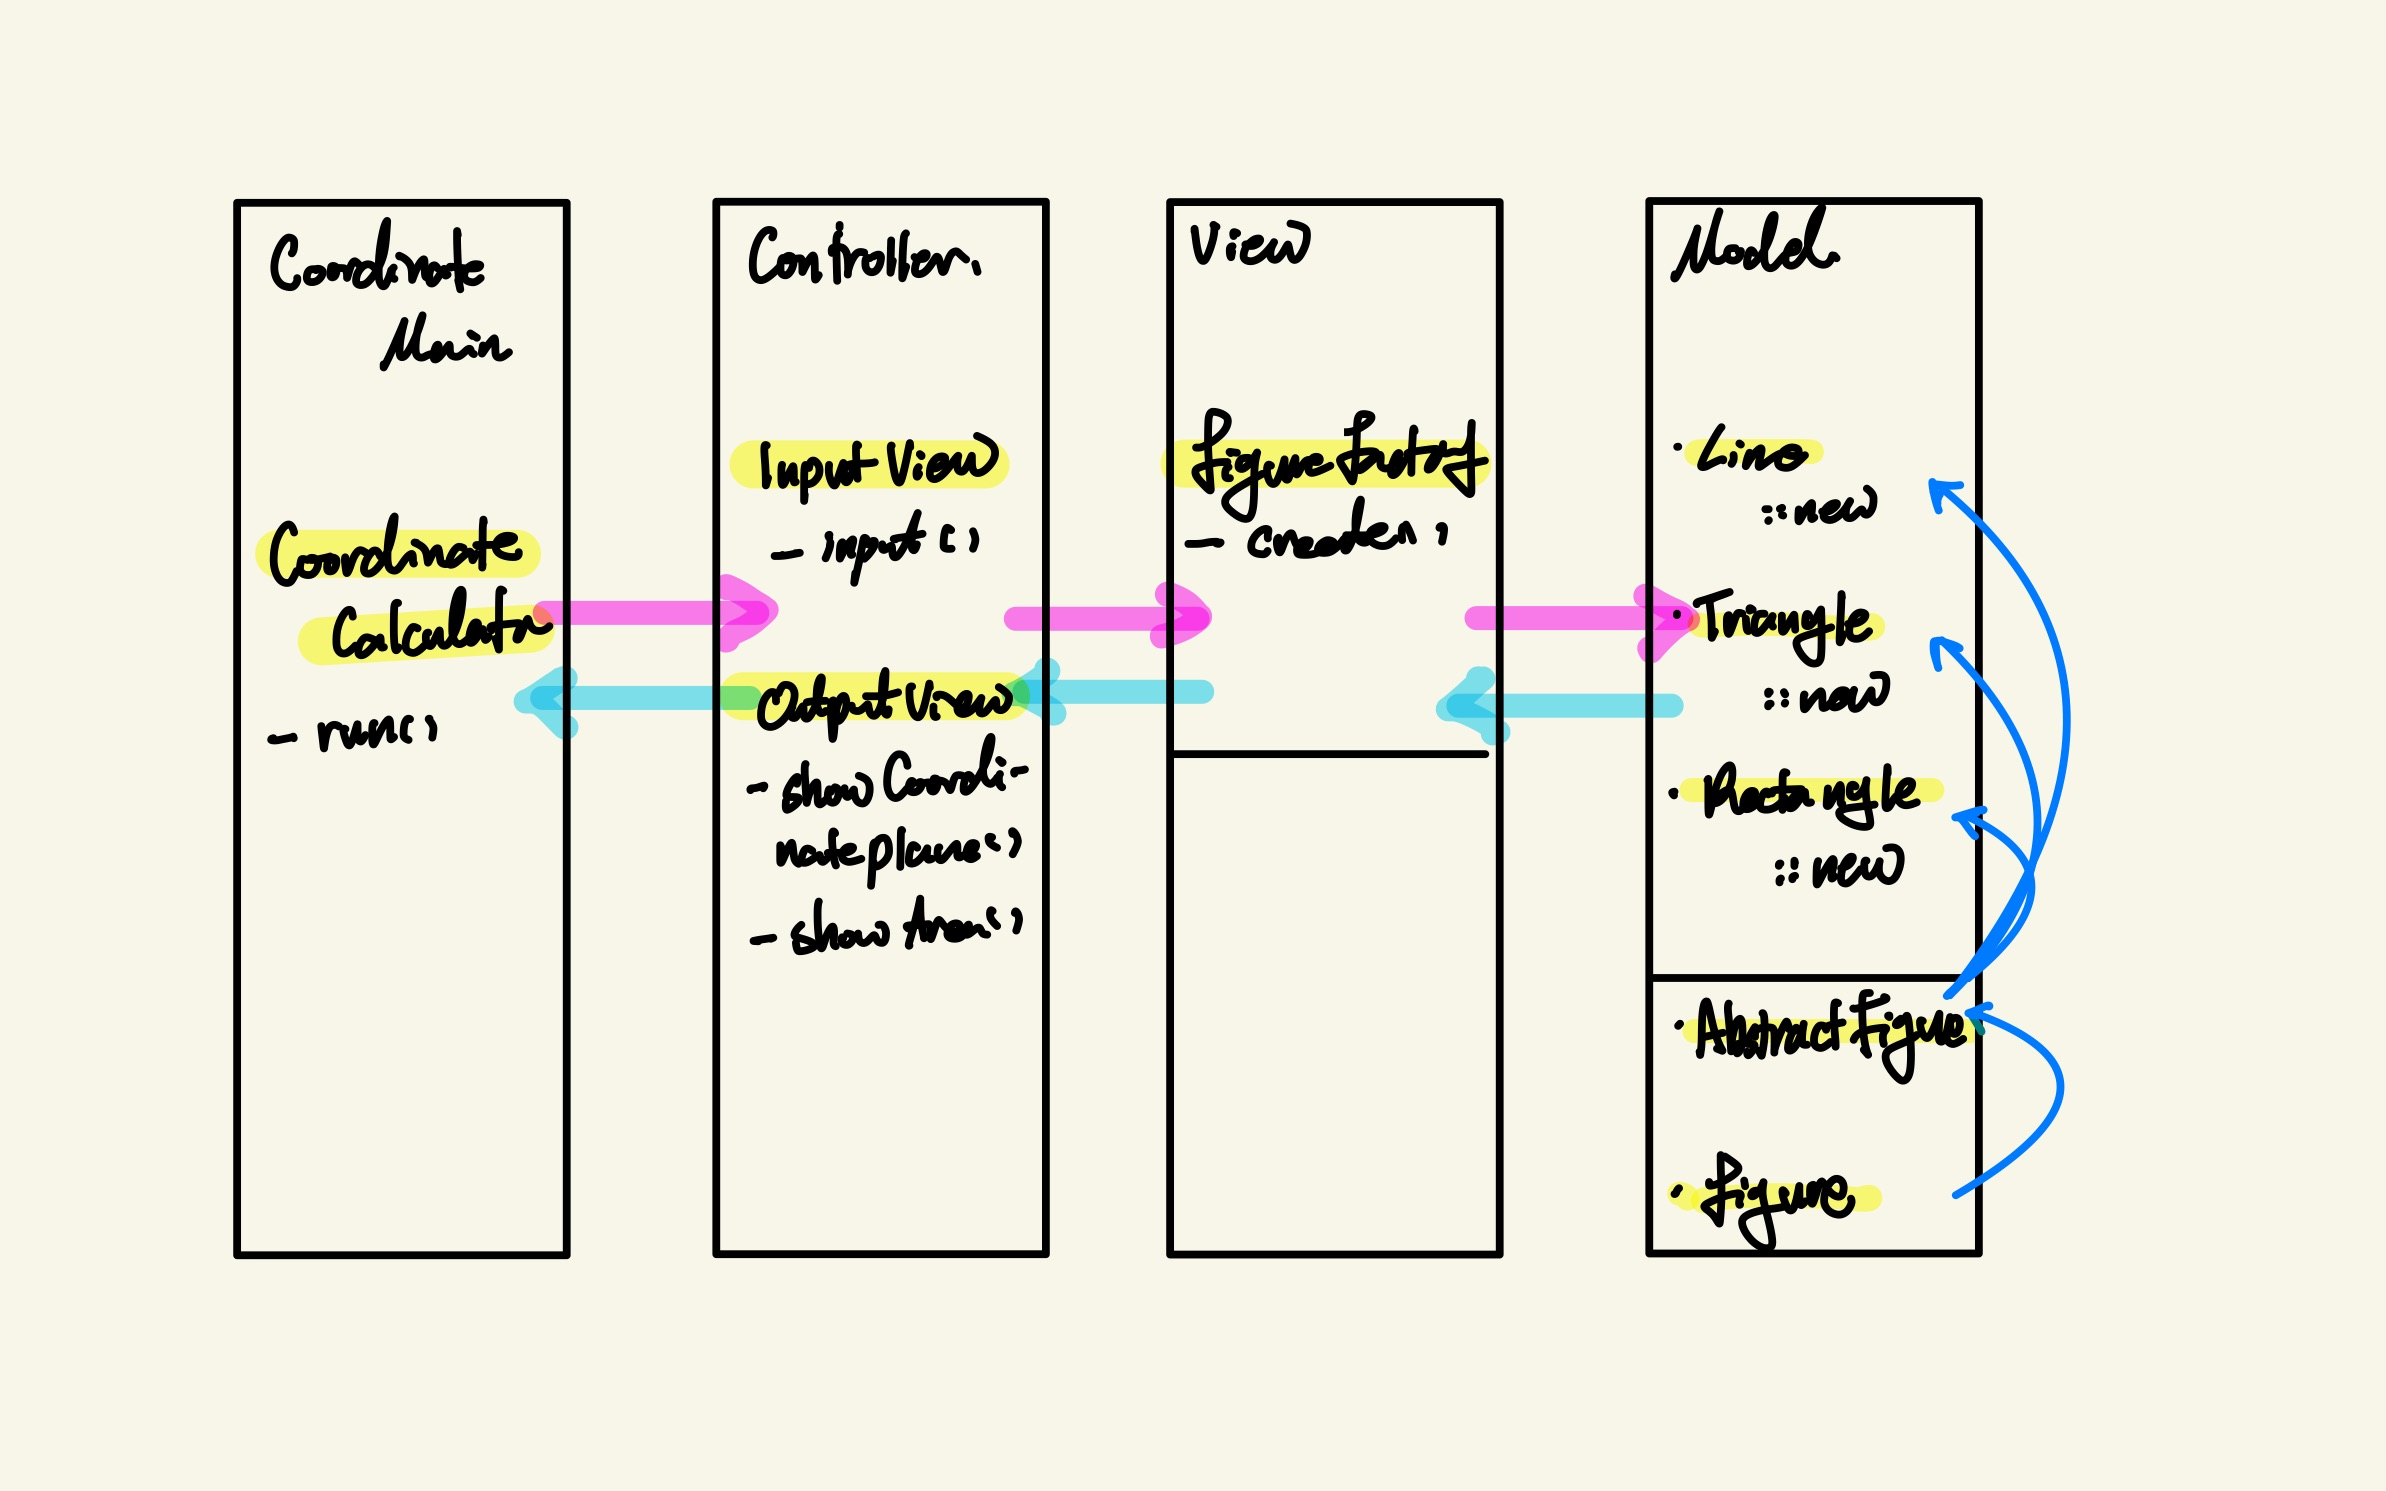 Coordinate
Main
Coordinate
Calculator
- run()
Controller
Input View
- input ()
Output View
- show Coordi-
nate plane()
- show Area()
View
Figure Factory
- create()
Model
· Line
:: new
· Triangle
:: new
· Rectangle
:: new
· Abstract Figure
· Figure